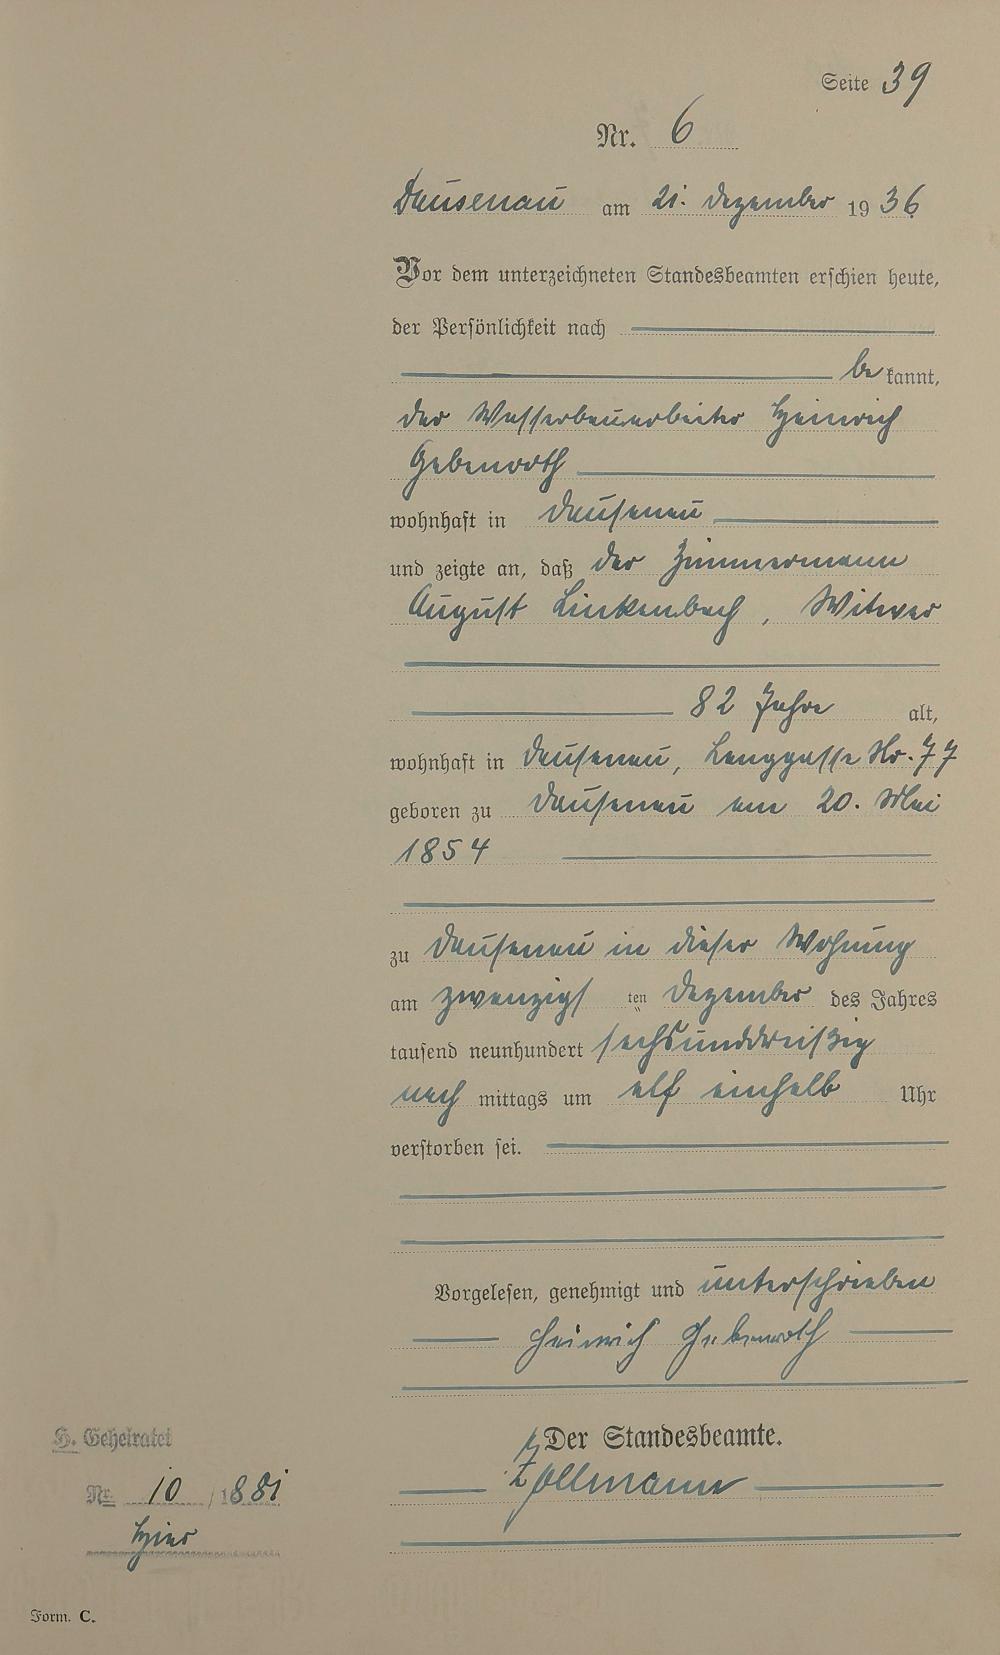 Seite 39
Nr. 6
Dausenau am 21. Dezember 1936
Vor dem unterzeichneten Standesbeamten erschien heute,
der Persönlichkeit nach
be kannt,
der Wasserbauarbeiter Heinrich
Gebenroth
wohnhaft in Dausenau
und zeigte an, daß der Zimmermann
August Linkenbach, Witwer
82 Jahre alt,
wohnhaft in Dausenau, Langgasse Nr. 77
geboren zu Dausenau am 20. Mai
1854
zu Dausenau in dieser Wohnung
am zwanzigsten Dezember des Jahres
tausend neunhundert sechsunddreißig
nach mittags um elf einhalb Uhr
verstorben sei.
Vorgelesen, genehmigt und unterschrieben
Heinrich Gebenroth
Der Standesbeamte.
H. Geheiratet
Nr. 10 / 1881
hier
Form. C.